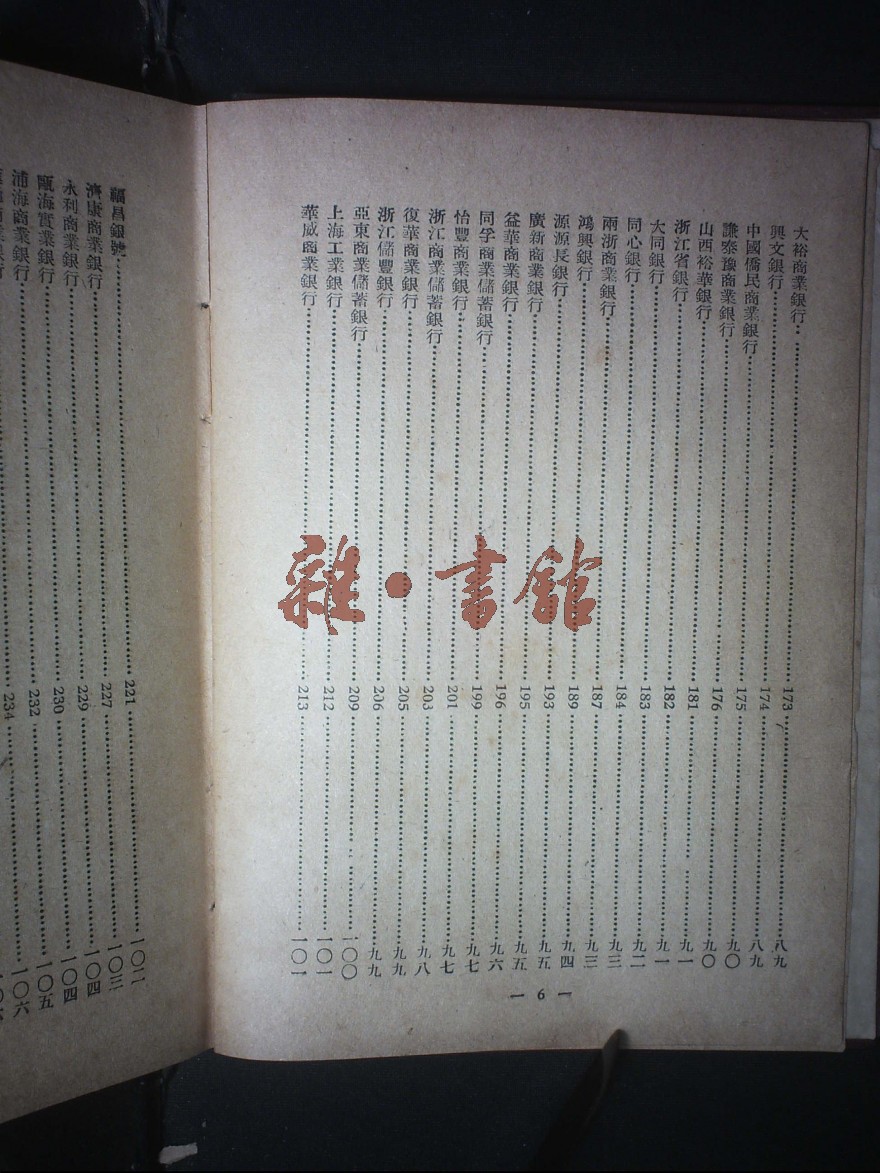 大裕商業銀行……173……八九
興文銀行……174……八九
中國僑民商業銀行……175……九〇
謙泰豫商業銀行……176……九〇
山西裕華銀行……181……九一
浙江省銀行……182……九一
大同銀行……183……九二
同心銀行……184……九三
兩浙商業銀行……187……九三
鴻興銀行……189……九四
源源長銀行……193……九五
廣新商業銀行……195……九五
益華商業銀行……196……九六
同孚商業儲蓄銀行……199……九七
怡豐商業銀行……201……九七
浙江商業儲蓄銀行……203……九八
復華商業銀行……205……九九
浙江儲豐銀行……206……九九
亞東商業儲蓄銀行……209……一〇〇
上海工業銀行……212……一〇一
華威商業銀行……213……一〇一
— 6 —
福昌銀號……221……一〇二
濟康商業銀行……227……一〇三
永利商業銀行……229……一〇四
甌海實業銀行……230……一〇四
浦海商業銀行……232……一〇五
商業銀行……234……一〇六
雜·書館